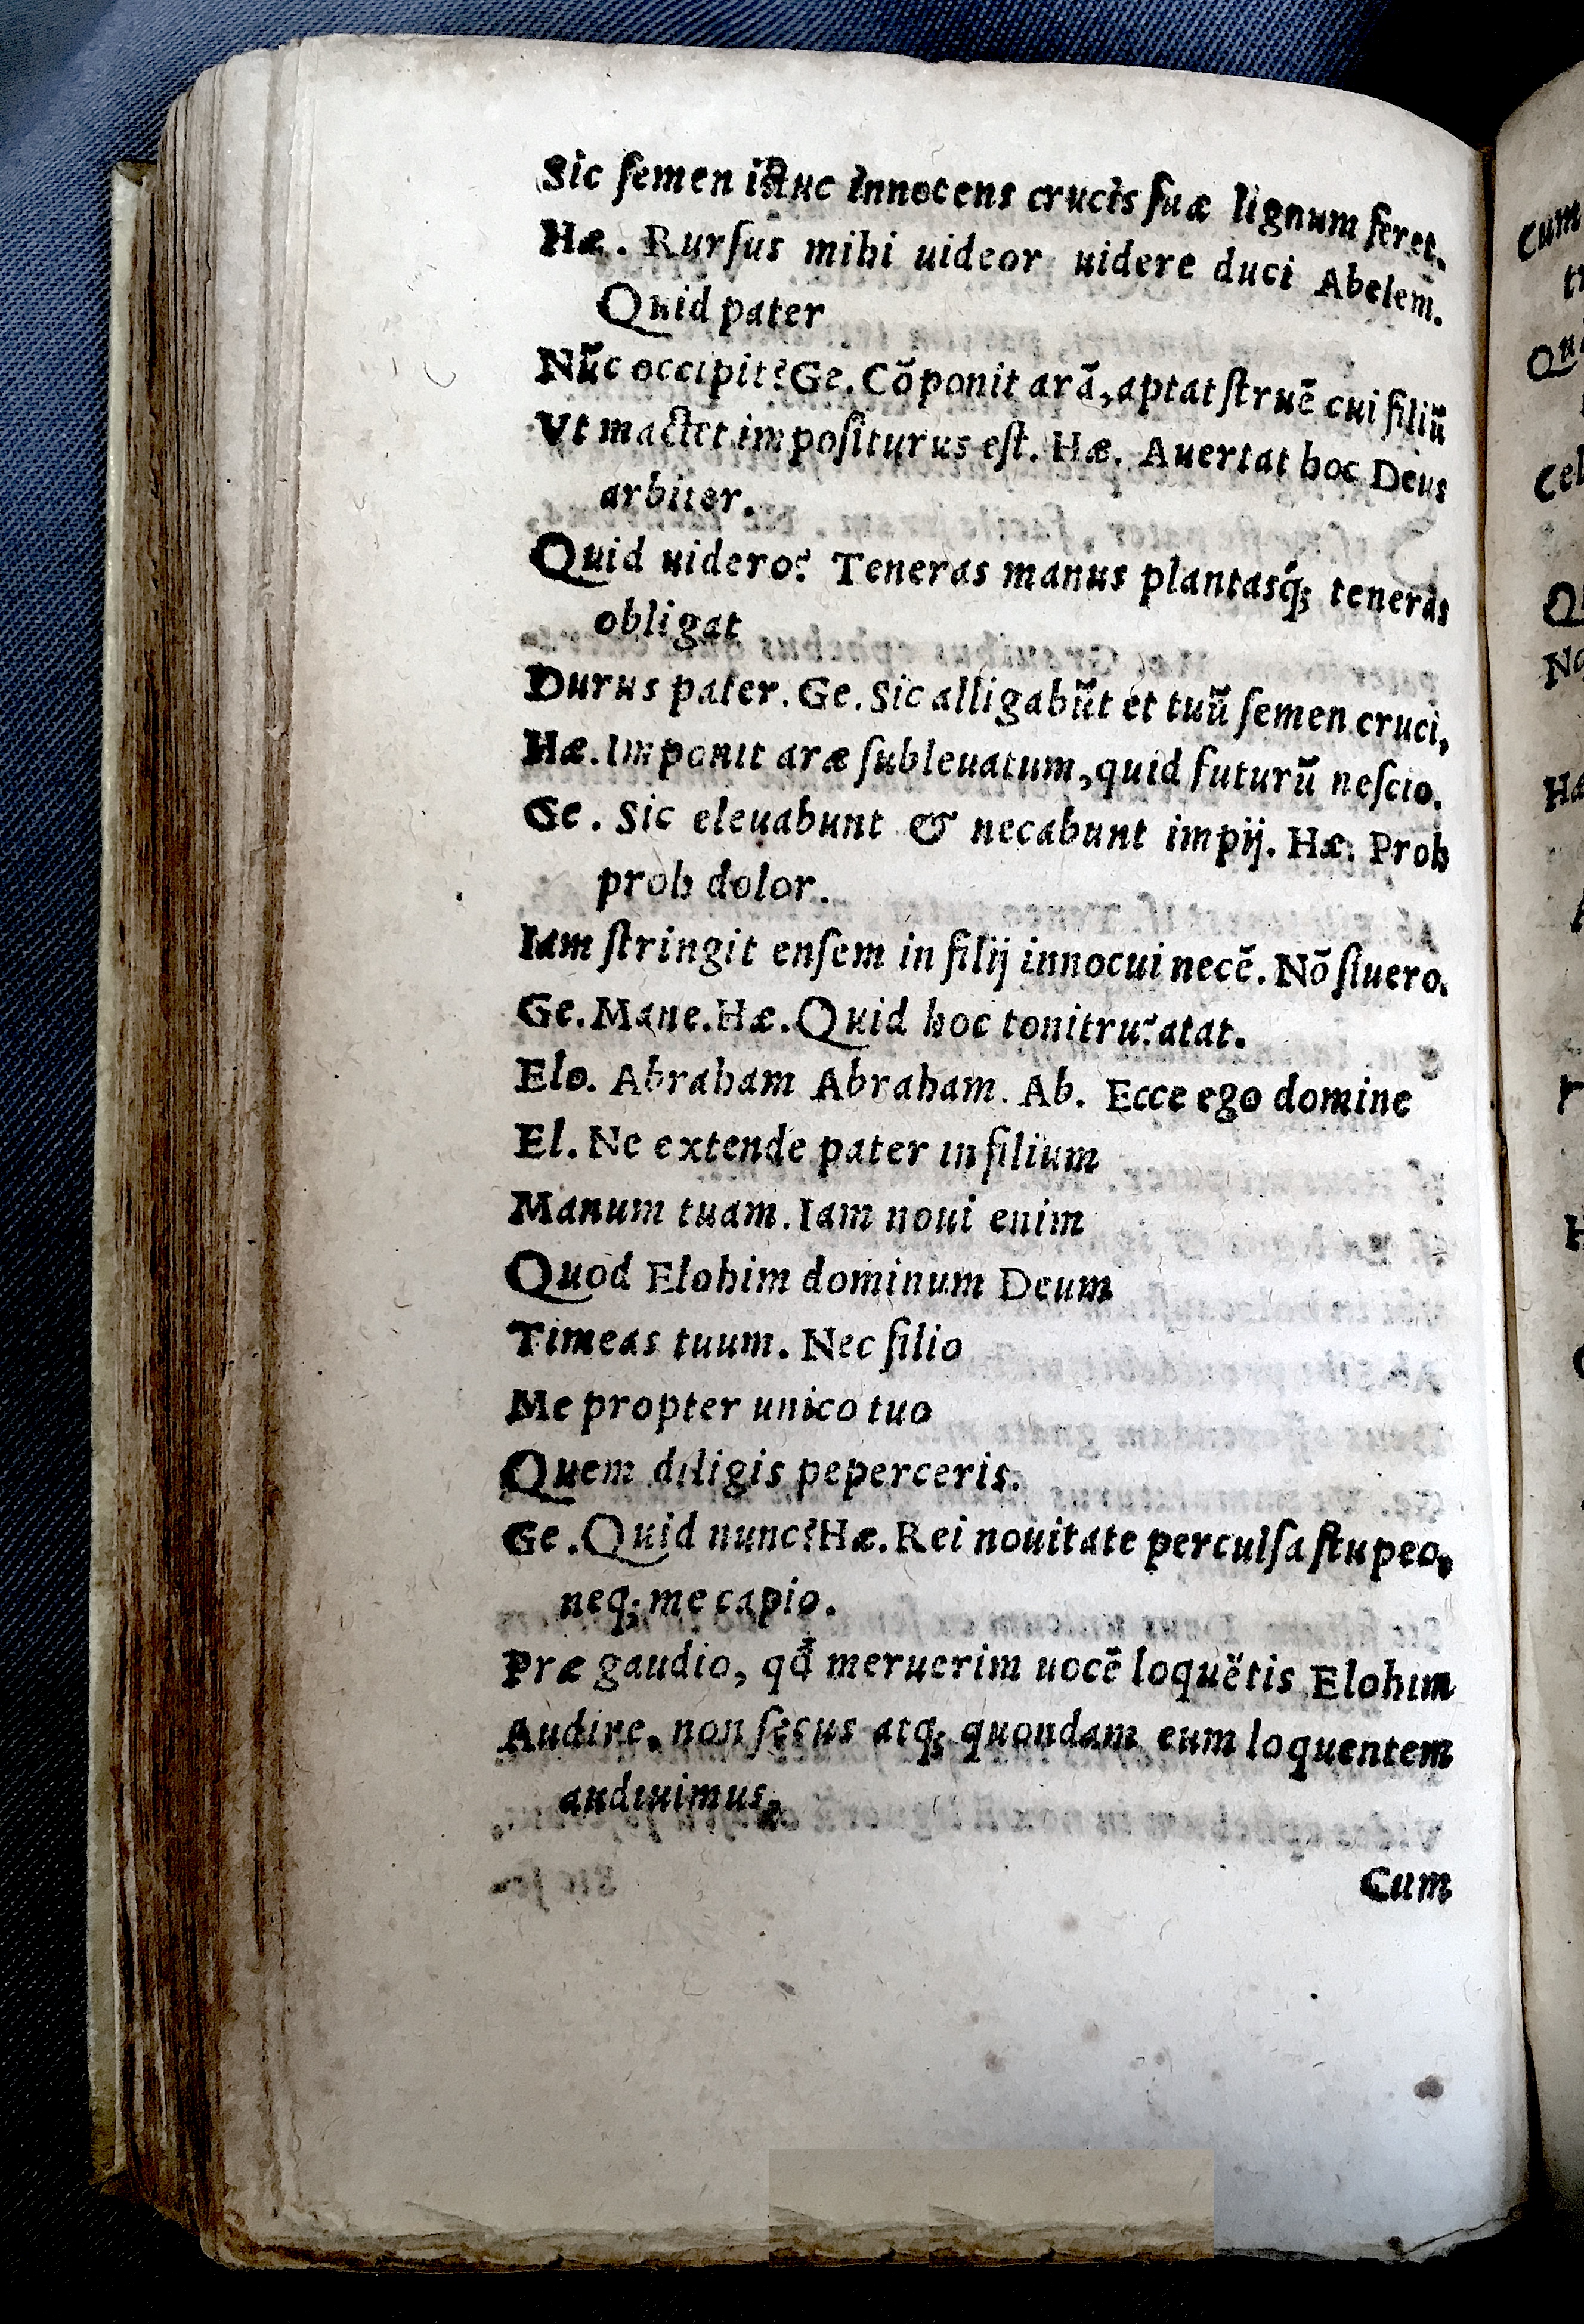 Sic ſemen iſtuc innocens crucis ſuæ lignum feret.
Hæ. Rurſus mihi uideor uidere duci Abelem.
Quid pater
Nūc occipit? Ge. Cōponit arā, aptat ſtruē cui filiū
Vt mactet impoſiturus eſt. Hæ. Auertat hoc Deus
arbiter.
Quid uidero? Teneras manus plantasq́; teneras
obligat
Durus pater. Ge. Sic alligabūt et tuū ſemen cruci,
Hæ. Imponit aræ ſubleuatum, quid futurū neſcio.
Ge. Sic eleuabunt & necabunt impij. Hæ. Proh
proh dolor.
Iam ſtringit enſem in filij innocui necē. Nō ſiuero.
Ge. Mane. Hæ. Quid hoc tonitru? atat.
Elo. Abraham Abraham. Ab. Ecce ego domine
El. Ne extende pater in filium
Manum tuam. Iam noui enim
Quod Elohim dominum Deum
Timeas tuum. Nec filio
Me propter unico tuo
Quem diligis peperceris.
Ge. Quid nunc? Hæ. Rei nouitate perculſa ſtupeo,
neq; me capio.
Præ gaudio, qđ meruerim uocē loquētis Elohim
Audire, non ſecus atq; quondam eum loquentem
audiuimus,
Cum